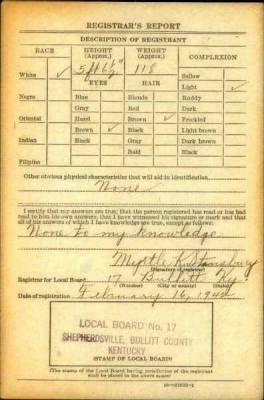 REGISTRAR'S REPORT
DESCRIPTION OF REGISTRANT
RACE HEIGHT (Approx.) WEIGHT (Approx.) COMPLEXION
White ✓ 5 ft 6½" 118 Sallow
Light ✓
EYES HAIR
Negro Blue Blonde Ruddy
Gray Red Dark
Oriental Hazel Brown ✓ Freckled
Brown ✓ Black Light brown
Indian Black Gray Dark brown
Bald Black
Filipino
Other obvious physical characteristics that will aid in identification
None
I certify that my answers are true; that the person registered has read or has had
read to him his own answers; that I have witnessed his signature or mark and that
all of his answers of which I have knowledge are true, except as follows:
None to my knowledge
Myrtle Stansbury
(Signature of registrar)
Registrar for Local Board 17 Bullitt Ky.
(Number) (City or county) (State)
Date of registration February 16, 1942
LOCAL BOARD No. 17
SHEPHERDSVILLE, BULLITT COUNTY
KENTUCKY
(STAMP OF LOCAL BOARD)
(The stamp of the Local Board having jurisdiction of the registrant
shall be placed in the above space.)